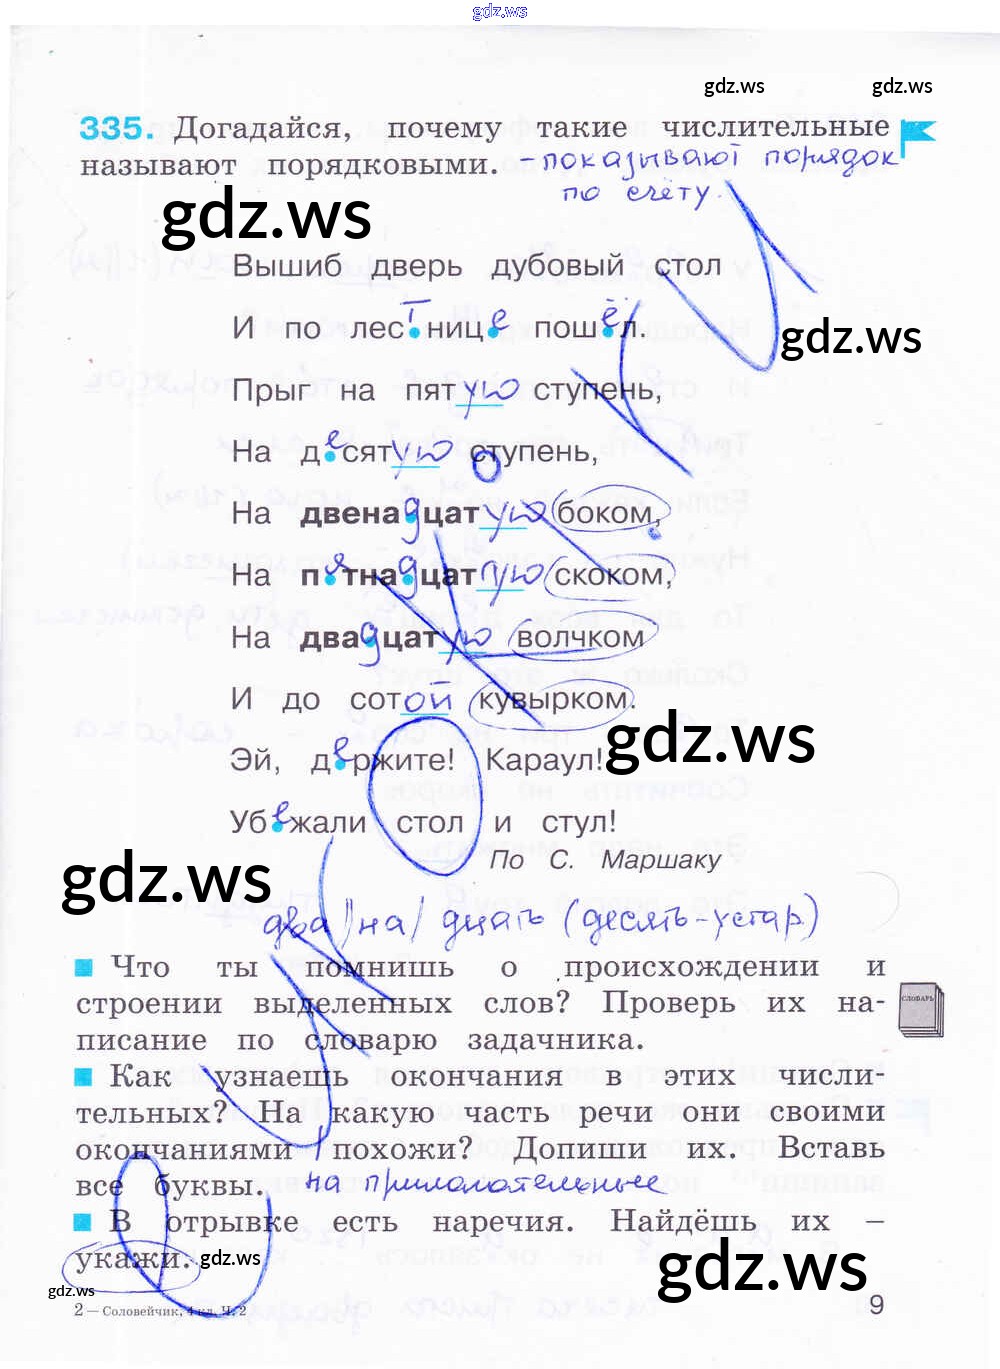 gdz.ws
gdz.ws gdz.ws
335. Догадайся, почему такие числительные
называют порядковыми. - показывают порядок
по счёту.
gdz.ws
Вышиб дверь дубовый стол
И по лестнице пошёл.
gdz.ws
Прыг на пятую ступень,
На десятую ступень,
На двенадцатую боком,
На пятнадцатую скоком,
На двадцатую волчком
И до сотой кувырком.
gdz.ws
Эй, держите! Караул!
Убежали стол и стул!
По С. Маршаку
gdz.ws
два/на/дцать (десять-устар)
Что ты помнишь о происхождении и
строении выделенных слов? Проверь их на-
писание по словарю задачника.
СЛОВАРЬ
Как узнаешь окончания в этих числи-
тельных? На какую часть речи они своими
окончаниями похожи? Допиши их. Вставь
все буквы. на прилагательные
В отрывке есть наречия. Найдёшь их –
укажи. gdz.ws
gdz.ws
gdz.ws
2 – Соловейчик, 4 кл. Ч. 2
9